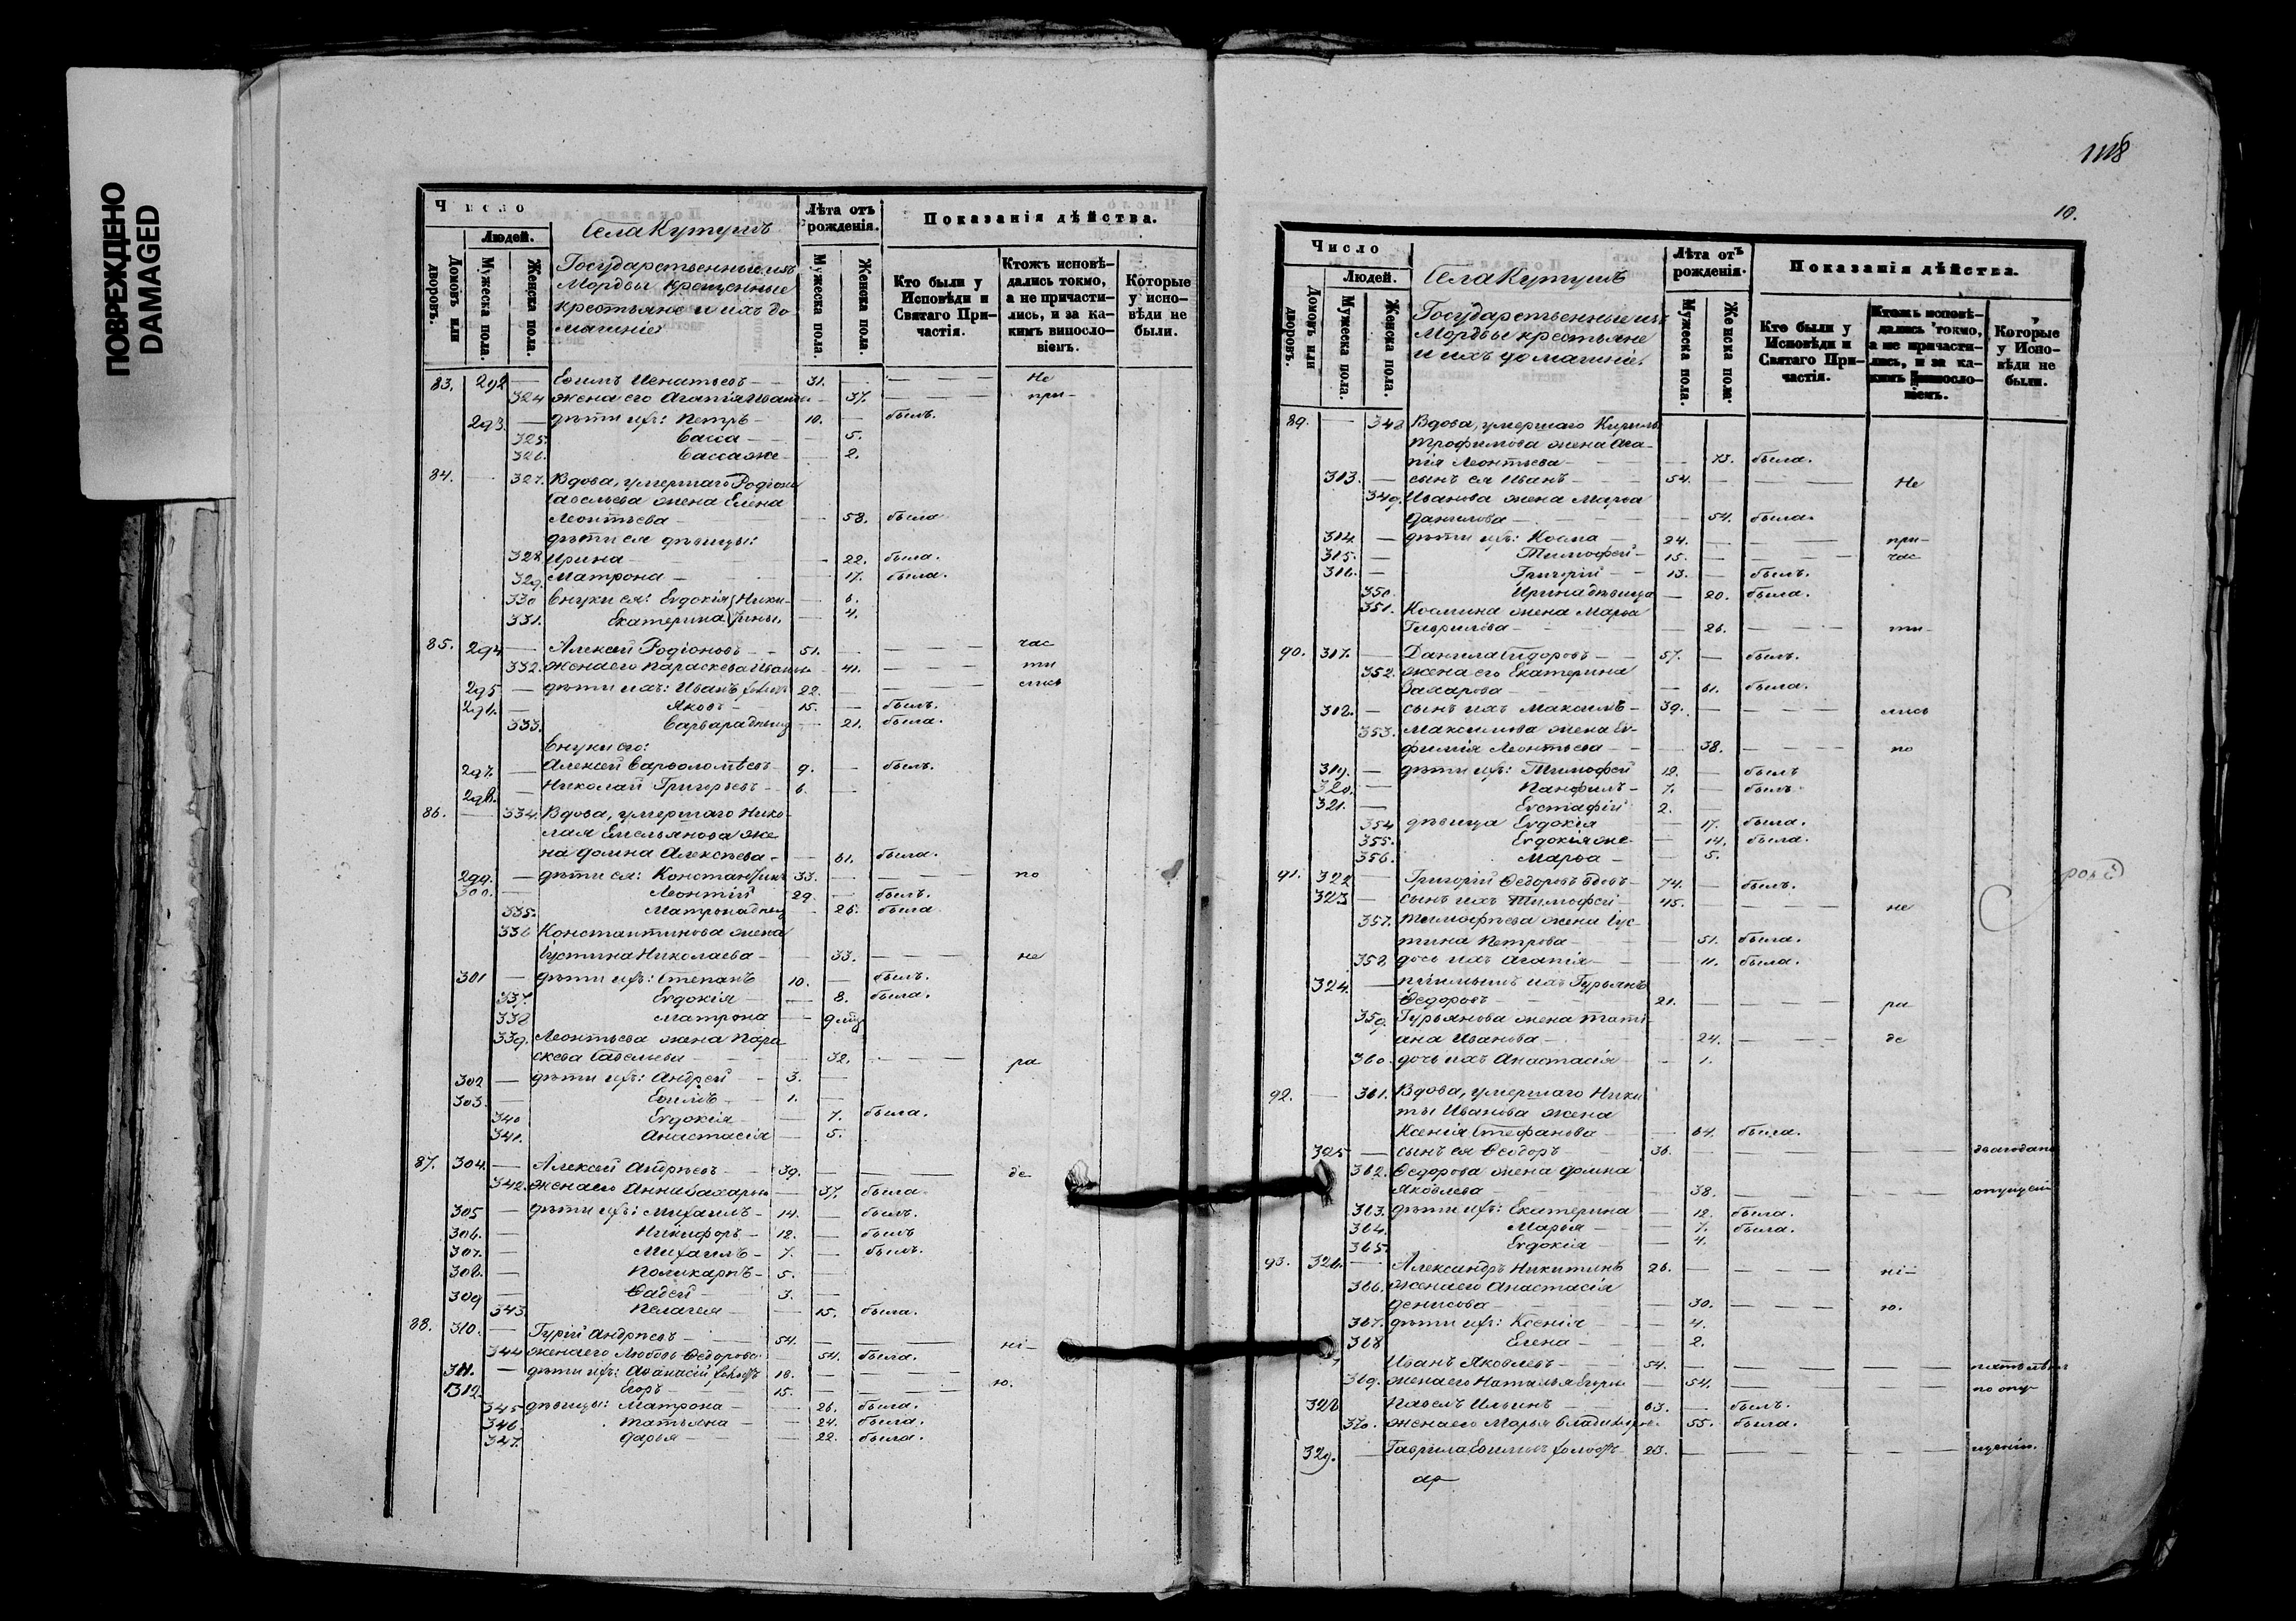 ПОВРЕЖДЕНО
DAMAGED
Число
Людей.
Домовъ или дворовъ.
Мужеска пола.
Женска пола.
Села Кутушъ
Государственные изъ
Мордвы крещенные
крестьяне и ихъ до
машніе
Лѣта отъ рожденія.
Мужеска пола.
Женска пола.
Показанія дѣйства.
Кто были у Исповѣди и Святаго Причастія.
Ктожъ исповѣдались токмо, а не причастились, и за какимъ винословіемъ.
Которые у исповѣди не были.
83. 292 — Ефимъ Игнатьевъ — 31. — — — Не
324 жена его Агапія Иванова — 37. — — — при-
293. — дѣти ихъ: Петръ — 10. — былъ.
325. Васса — — 5.
326. Васса же — — 2.
84. — 327. Вдова, умершаго Родіона
Савельева жена Елена
Леонтьева — — 58. была
дѣти ея дѣвицы:
328 Ирина — 22. была.
329. Матрона — 17. была.
330 Внуки ея: Евдокія Ники- — 6.
331. Екатерина тины — 4.
85. 294 — Алексѣй Родіоновъ — 51. — — — час
332. жена его Параскева Иванова — 41. — — — ти
295 — дѣти ихъ: Иванъ холост 22. — — — лись
296. — Яковъ — 15. — былъ.
333. Варвара дѣвица — 21. была.
Внуки его:
297. — Алексѣй Варѳоломѣевъ 9. — былъ.
298. — Николай Григорьевъ — 6. —
86. — 334. Вдова, умершаго Нико-
лая Емельянова же
на Домна Алексѣева — — 61. была.
299. — дѣти ея: Константинъ 33. — — — по
300. — Леонтій 29. — былъ.
335. Матрона дѣвица — 26. была.
336 Константинова жена
Іустина Николаева — — 33. — — — не
301 — дѣти ихъ: Степанъ 10. — былъ.
337. Евдокія — 8. была.
338 Матрона — 9 мѣц
339. Леонтьева жена Пара
скева Савельева — 32. — — — ра
302 — дѣти ихъ: Андрей — 3. —
303. — Ефимъ — 1. —
340 Евдокія — 7. была.
341. Анастасія — 5.
87. 304. — Алексѣй Андреевъ — 39. — — — де
342. жена его Анна Захарова — 37. была.
305 — дѣти ихъ: Михаилъ — 14. — былъ.
306. — Никифоръ — 12. — былъ
307. — Михаилъ — 7. — былъ.
308. — Поликарпъ — 5. —
309 — Ѳадей — 3. —
343. Пелагея — 15. была.
88. 310. — Гурій Андреевъ — 54. — — — ні-
344 жена его Любовь Ѳедорова — 54. была.
311. — дѣти ихъ: Аѳанасій холост 18. — — —
312. — Егоръ — 15. — — — ю.
345 дѣвицы: Матрона — 26. была.
346. Татьяна — 24. была.
347. Дарья — 22. была.
1118
10.
Число
Людей.
Домовъ или дворовъ.
Мужеска пола.
Женска пола.
Села Кутушъ
Государственные изъ
Мордвы крестьяне
и ихъ домашніе.
Лѣта отъ рожденія.
Мужеска пола.
Женска пола.
Показанія дѣйства.
Кто были у Исповѣди и Святаго Причастія.
Ктожъ исповѣдались токмо, а не причастились, и за какимъ винословіемъ.
Которые у Исповѣди не были.
89. — 348 Вдова, умершаго Кирила
Трофимова жена Ага-
пія Леонтьева — — 73. была.
313. — сынъ ея Иванъ — 54. — — — Не
349. Иванова жена Марѳа
Данилова — — 54. была.
314 — дѣти ихъ: Косма — 24. — — — при-
315. — Тимофей — 15. — — — час
316. — Григорій — 13. — былъ.
350. Ирина дѣвица — 20. была.
351. Космина жена Марѳа
Гаврилова — — 26. — — — ти-
90. 317. — Данила Сидоровъ — 57. — былъ.
352. жена его Екатерина
Захарова — — 61. была.
318. — сынъ ихъ Максимъ — 39. — — — лись
353. Максимова жена Ев-
фимія Леонтьева — — 38. — — — по
319. — дѣти ихъ: Тимофей 12. — былъ
320. — Панфилъ — 7. — былъ.
321. — Евстафій 2. —
354 дѣвица Евдокія — 17. была.
355. Евдокія же — 14. была.
356. Марѳа — 5.
91. 322 — Григорій Ѳедоровъ вдовъ — 74. — былъ.
323 — сынъ ихъ Тимофей — 45. — — — не
357. Тимофѣева жена Іус-
тина Петрова — — 51. была.
358 дочь ихъ Агапія — 11. была.
324. — пріимышъ ихъ Гурьянъ
Ѳедоровъ — 21. — — — ра
359. Гурьянова жена Тать-
яна Иванова — 24. — — — де
360. дочь ихъ Анастасія — 1.
92. — 361. Вдова, умершаго Ники
ты Иванова жена
Ксенія Стефанова — — 64. была.
325 — сынъ ея Ѳеодоръ 36. — — — два года по
362. Ѳедорова жена Домна
Яковлева — 38. — — — опущен
363. дѣти ихъ: Екатерина — 12. была.
364. Марья — 7. была.
365. Евдокія — 4.
93. 326. — Александръ Никитинъ 26. — — — ні-
366. жена его Анастасія
Денисова — — 30. — — — ю.
367. дѣти ихъ: Ксенія — 4.
368 Елена — 2.
Иванъ Яковлевъ — 54. — — —
369. жена его Наталья Егорова — 54. — — — по опу-
328 Павелъ Ильинъ — 63. — былъ.
370. жена его Марья Владимірова — 55. была.
329. — Гаврила Ефимовъ холост 23. — — — щенію.